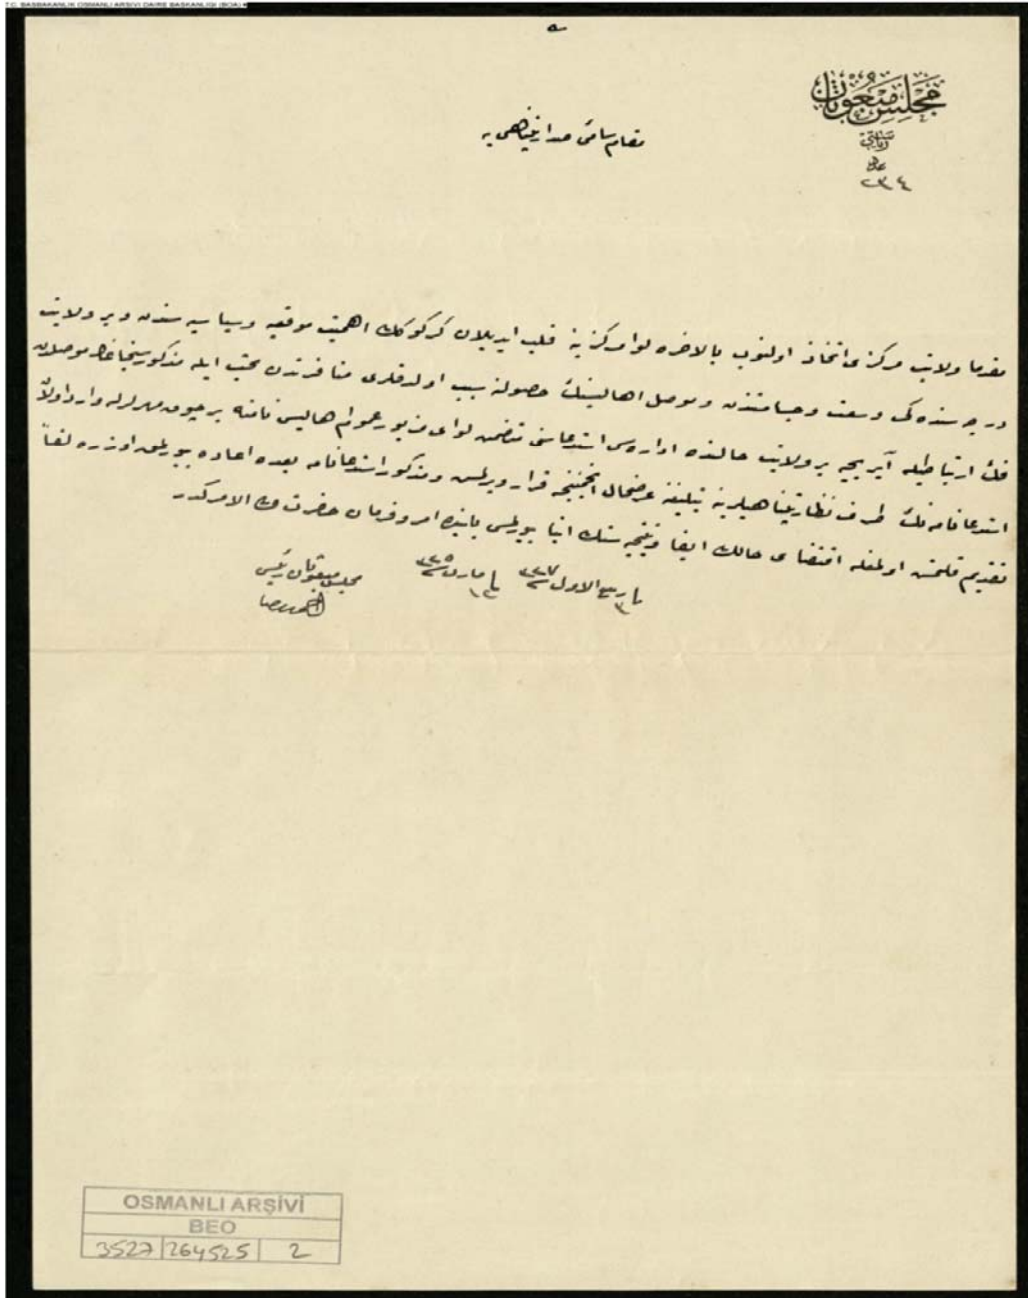 T.C. BAŞBAKANLIK OSMANLI ARŞİVİ DAİRE BAŞKANLIĞI (BOA)
مجلس مبعوثان
رياستى
عدد
٢٣٤
مقام سامئ صدارتپناهى يه
مقدما ولايت مركزى اتخاذ اولنوب بالاخره لوا مركزينه قلب ايديلان كركوكك اهميت موقعيه وسياسيه سندن و بر ولايت
درجه سنده كى وسعت وجسامتندن و موصل اهاليسنك حصولنه سبب اولدقلرى منافرتدن بحث ايله مذكور سنجاغك موصلدن
فك ارتباطيله آيريجه بر ولايت حالنده اداره سى استدعاسنى متضمن لواى مزبور عموم اهاليسى نامنه برچوق مهرلرله وارد اولان
استدعانامه نك طرف نظارتپناهيلرينه تبليغنه عرضحال انجمننجه قرار ويرلمش ومذكور استدعانامه بعده اعاده بيورلمق اوزره لفاً
تقديم قلنمش اولمغله اقتضاى حالك ايفا ونتيجه سنك انبا بيورلمسى بابنده امر وفرمان حضرت من له الامركدر
ربيع الاول ٣٢٧ مارت ٣٢٥
مجلس مبعوثان رئيسى
احمد رضا
OSMANLI ARŞİVİ
BEO
3527 264525 2